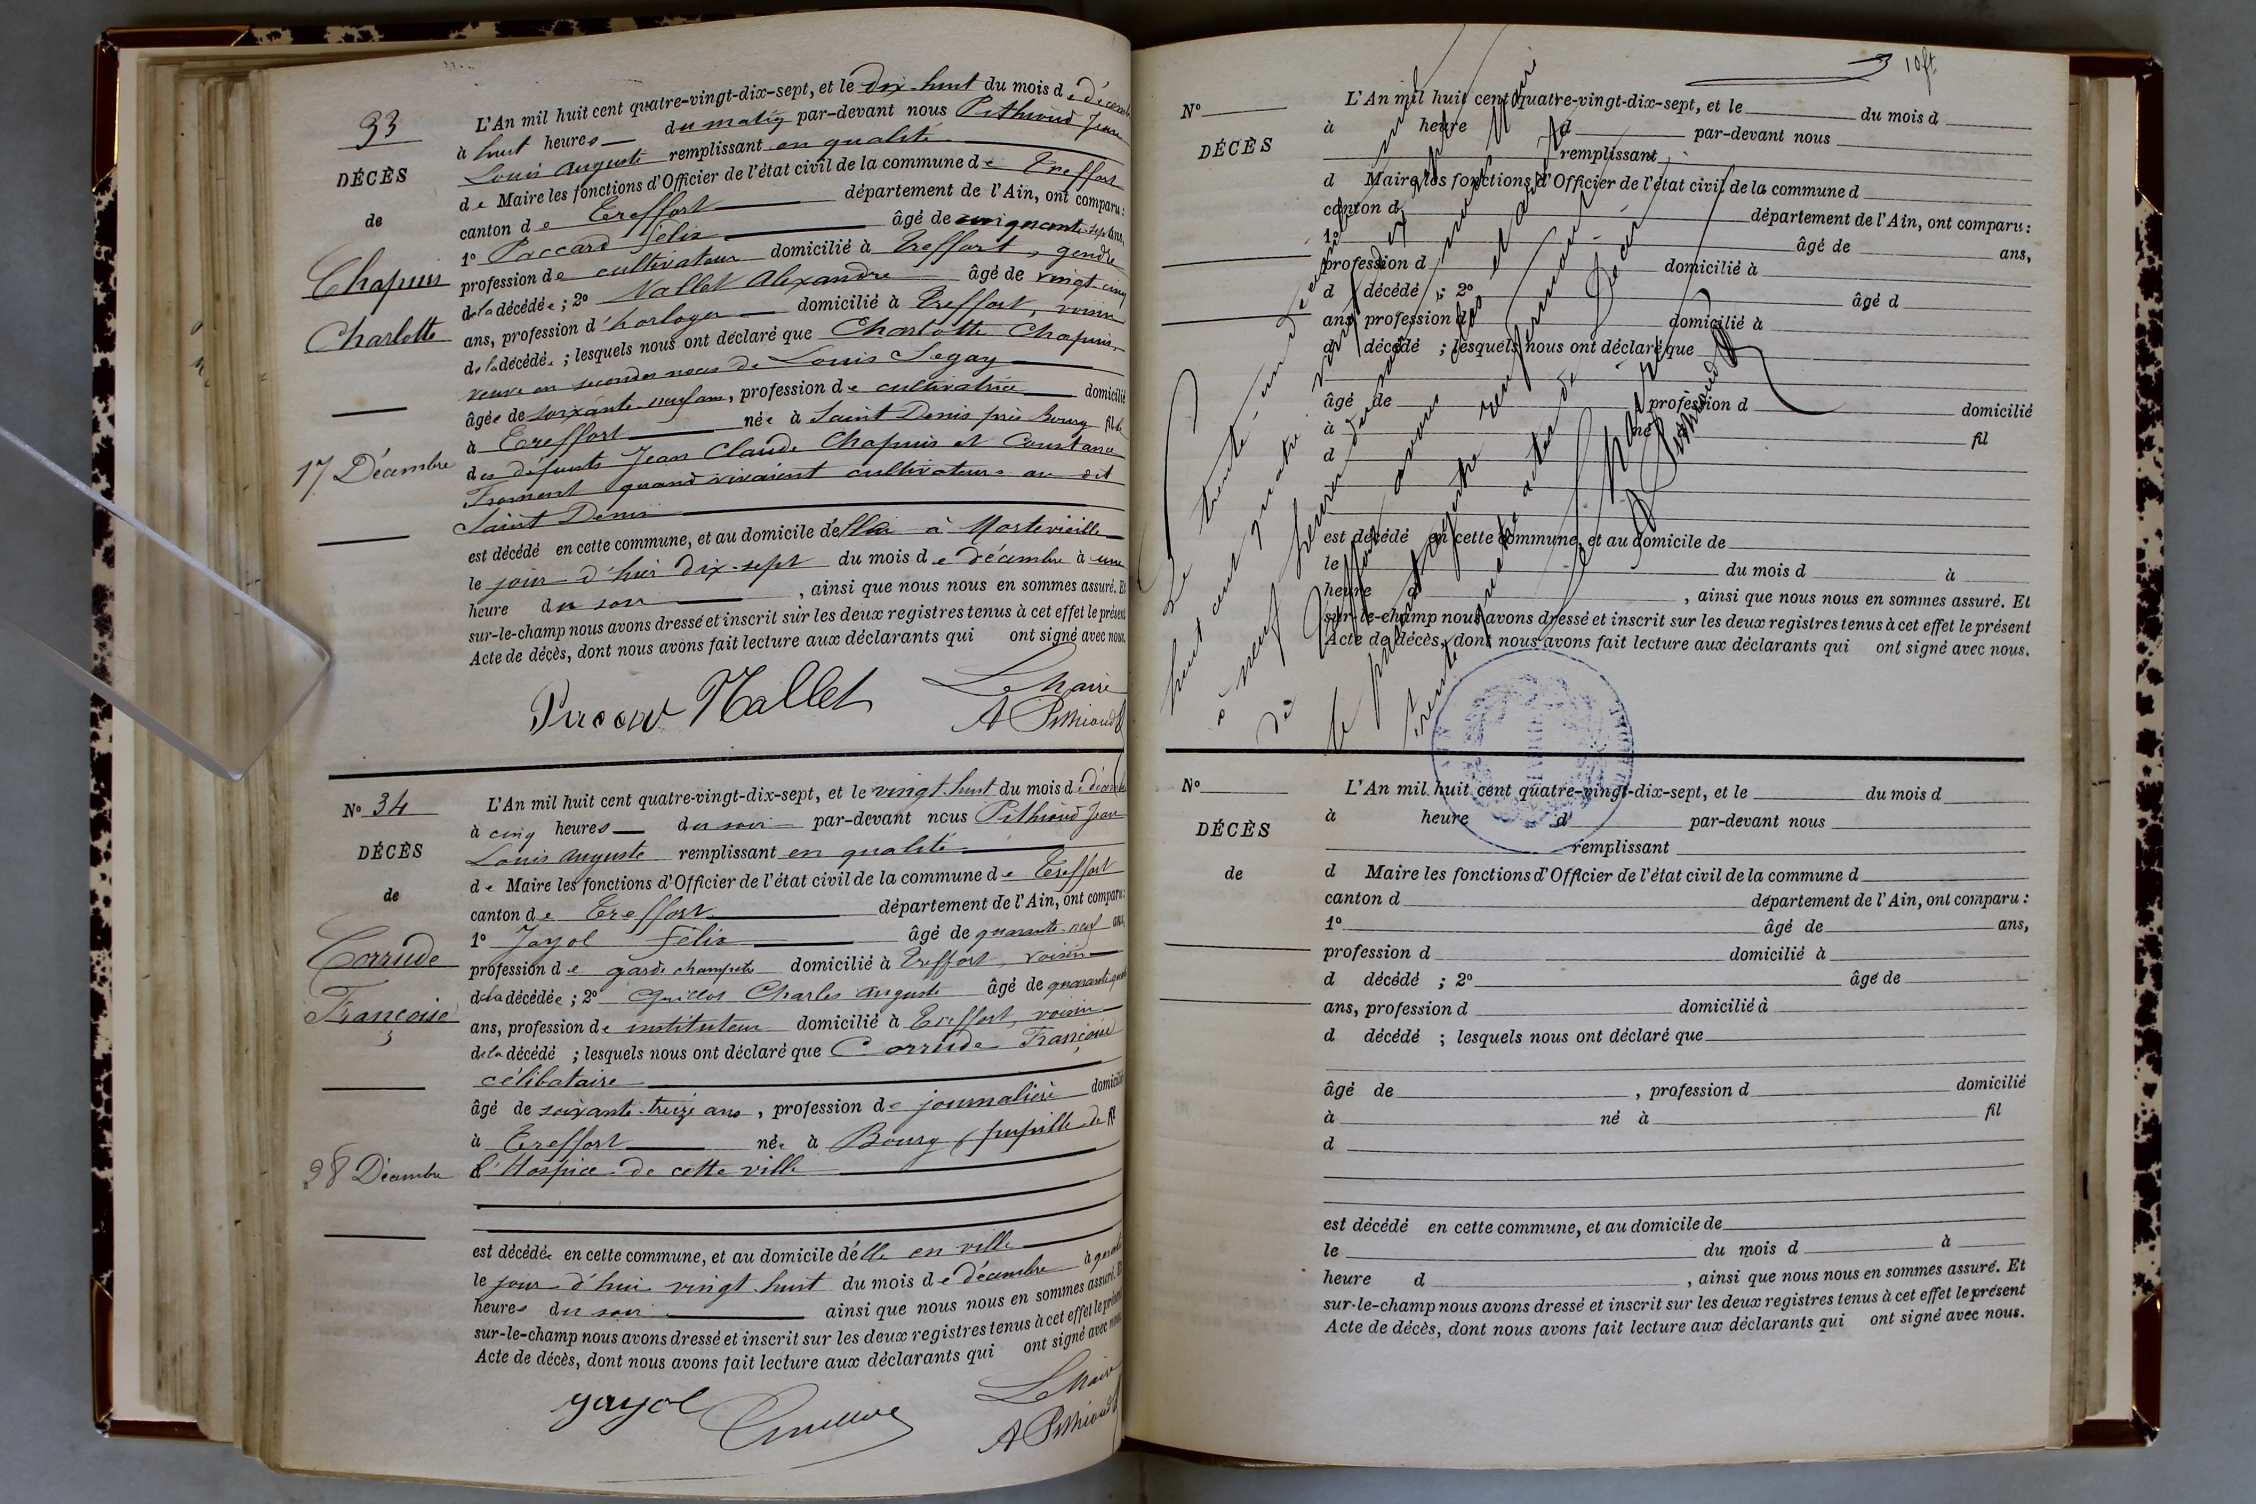 33
DÉCÈS
de
Chapuis
Charlotte
17 Décembre
L'An mil huit cent quatre-vingt-dix-sept, et le dix-huit du mois de décembre
à huit heures du matin par-devant nous Pithioud Jean
Louis Auguste remplissant en qualité
de Maire les fonctions d'Officier de l'état civil de la commune de Treffort
canton de Treffort département de l'Ain, ont comparu :
1º Paccard Félix âgé de cinquante-sept ans,
profession de cultivateur domicilié à Treffort, gendre
de la décédée ; 2º Nallet Alexandre âgé de vingt cinq
ans, profession d'horloger domicilié à Treffort, voisin
de la décédée ; lesquels nous ont déclaré que Charlotte Chapuis,
veuve en secondes noces de Louis Segay
âgée de soixante-neuf ans, profession de cultivatrice domicilié
à Treffort née à Saint Denis près Bourg fille
des défunts Jean Claude Chapuis et Constance
Froment quand vivaient cultivateurs au dit
Saint Denis
est décédé en cette commune, et au domicile d'elle à Montevieille
le jour d'hier dix-sept du mois de décembre à une
heure du soir , ainsi que nous nous en sommes assuré. Et
sur-le-champ nous avons dressé et inscrit sur les deux registres tenus à cet effet le présent
Acte de décès, dont nous avons fait lecture aux déclarants qui ont signé avec nous.
Paccard Nallet Le Maire
A Pithioud
Nº 34
DÉCÈS
de
Corrude
Françoise
28 Décembre
L'An mil huit cent quatre-vingt-dix-sept, et le vingt-huit du mois de décembre
à cinq heures du soir par-devant nous Pithioud Jean
Louis Auguste remplissant en qualité
de Maire les fonctions d'Officier de l'état civil de la commune de Treffort
canton de Treffort département de l'Ain, ont comparu :
1º Jayol Félix âgé de quarante-neuf ans,
profession de garde champêtre domicilié à Treffort, voisin
de la décédée ; 2º Guillot Charles Auguste âgé de quarante
ans, profession de instituteur domicilié à Treffort, voisin
de la décédé ; lesquels nous ont déclaré que Corrude Françoise
célibataire
âgé de soixante-treize ans, profession de journalière domicilié
à Treffort née à Bourg, pupille de
l'Hospice de cette ville
est décédée en cette commune, et au domicile d'elle en ville
le jour d'hui vingt-huit du mois de décembre à quatre
heures du soir ainsi que nous nous en sommes assuré. Et
sur-le-champ nous avons dressé et inscrit sur les deux registres tenus à cet effet le présent
Acte de décès, dont nous avons fait lecture aux déclarants qui ont signé avec nous
Jayol Le Maire
A Pithioud
10 ft
Nº
DÉCÈS
L'An mil huit cent quatre-vingt-dix-sept, et le du mois d
à heure d par-devant nous
remplissant
d Maire les fonctions d'Officier de l'état civil de la commune d
canton d département de l'Ain, ont comparu :
1º âgé de ans,
profession d domicilié à
d décédé ; 2º âgé d
ans, profession d domicilié à
d décédé ; lesquels nous ont déclaré que
âgé de profession d domicilié
à né à fil
d
est décédé en cette commune, et au domicile de
le du mois d à
heure d , ainsi que nous nous en sommes assuré. Et
sur-le-champ nous avons dressé et inscrit sur les deux registres tenus à cet effet le présent
Acte de décès, dont nous avons fait lecture aux déclarants qui ont signé avec nous.
Le trente-un décembre mil
huit cent quatre vingt dix sept
à neuf heures du soir nous Maire
de Treffort avons clos et arrêté
le présent registre renfermant
trente quatre actes de décès
Le Maire
A Pithioud
Nº
DÉCÈS
de
L'An mil huit cent quatre-vingt-dix-sept, et le du mois d
à heure d par-devant nous
remplissant
d Maire les fonctions d'Officier de l'état civil de la commune d
canton d département de l'Ain, ont comparu :
1º âgé de ans,
profession d domicilié à
d décédé ; 2º âgé de
ans, profession d domicilié à
d décédé ; lesquels nous ont déclaré que
âgé de , profession d domicilié
à né à fil
d
est décédé en cette commune, et au domicile de
le du mois d à
heure d , ainsi que nous nous en sommes assuré. Et
sur-le-champ nous avons dressé et inscrit sur les deux registres tenus à cet effet le présent
Acte de décès, dont nous avons fait lecture aux déclarants qui ont signé avec nous.